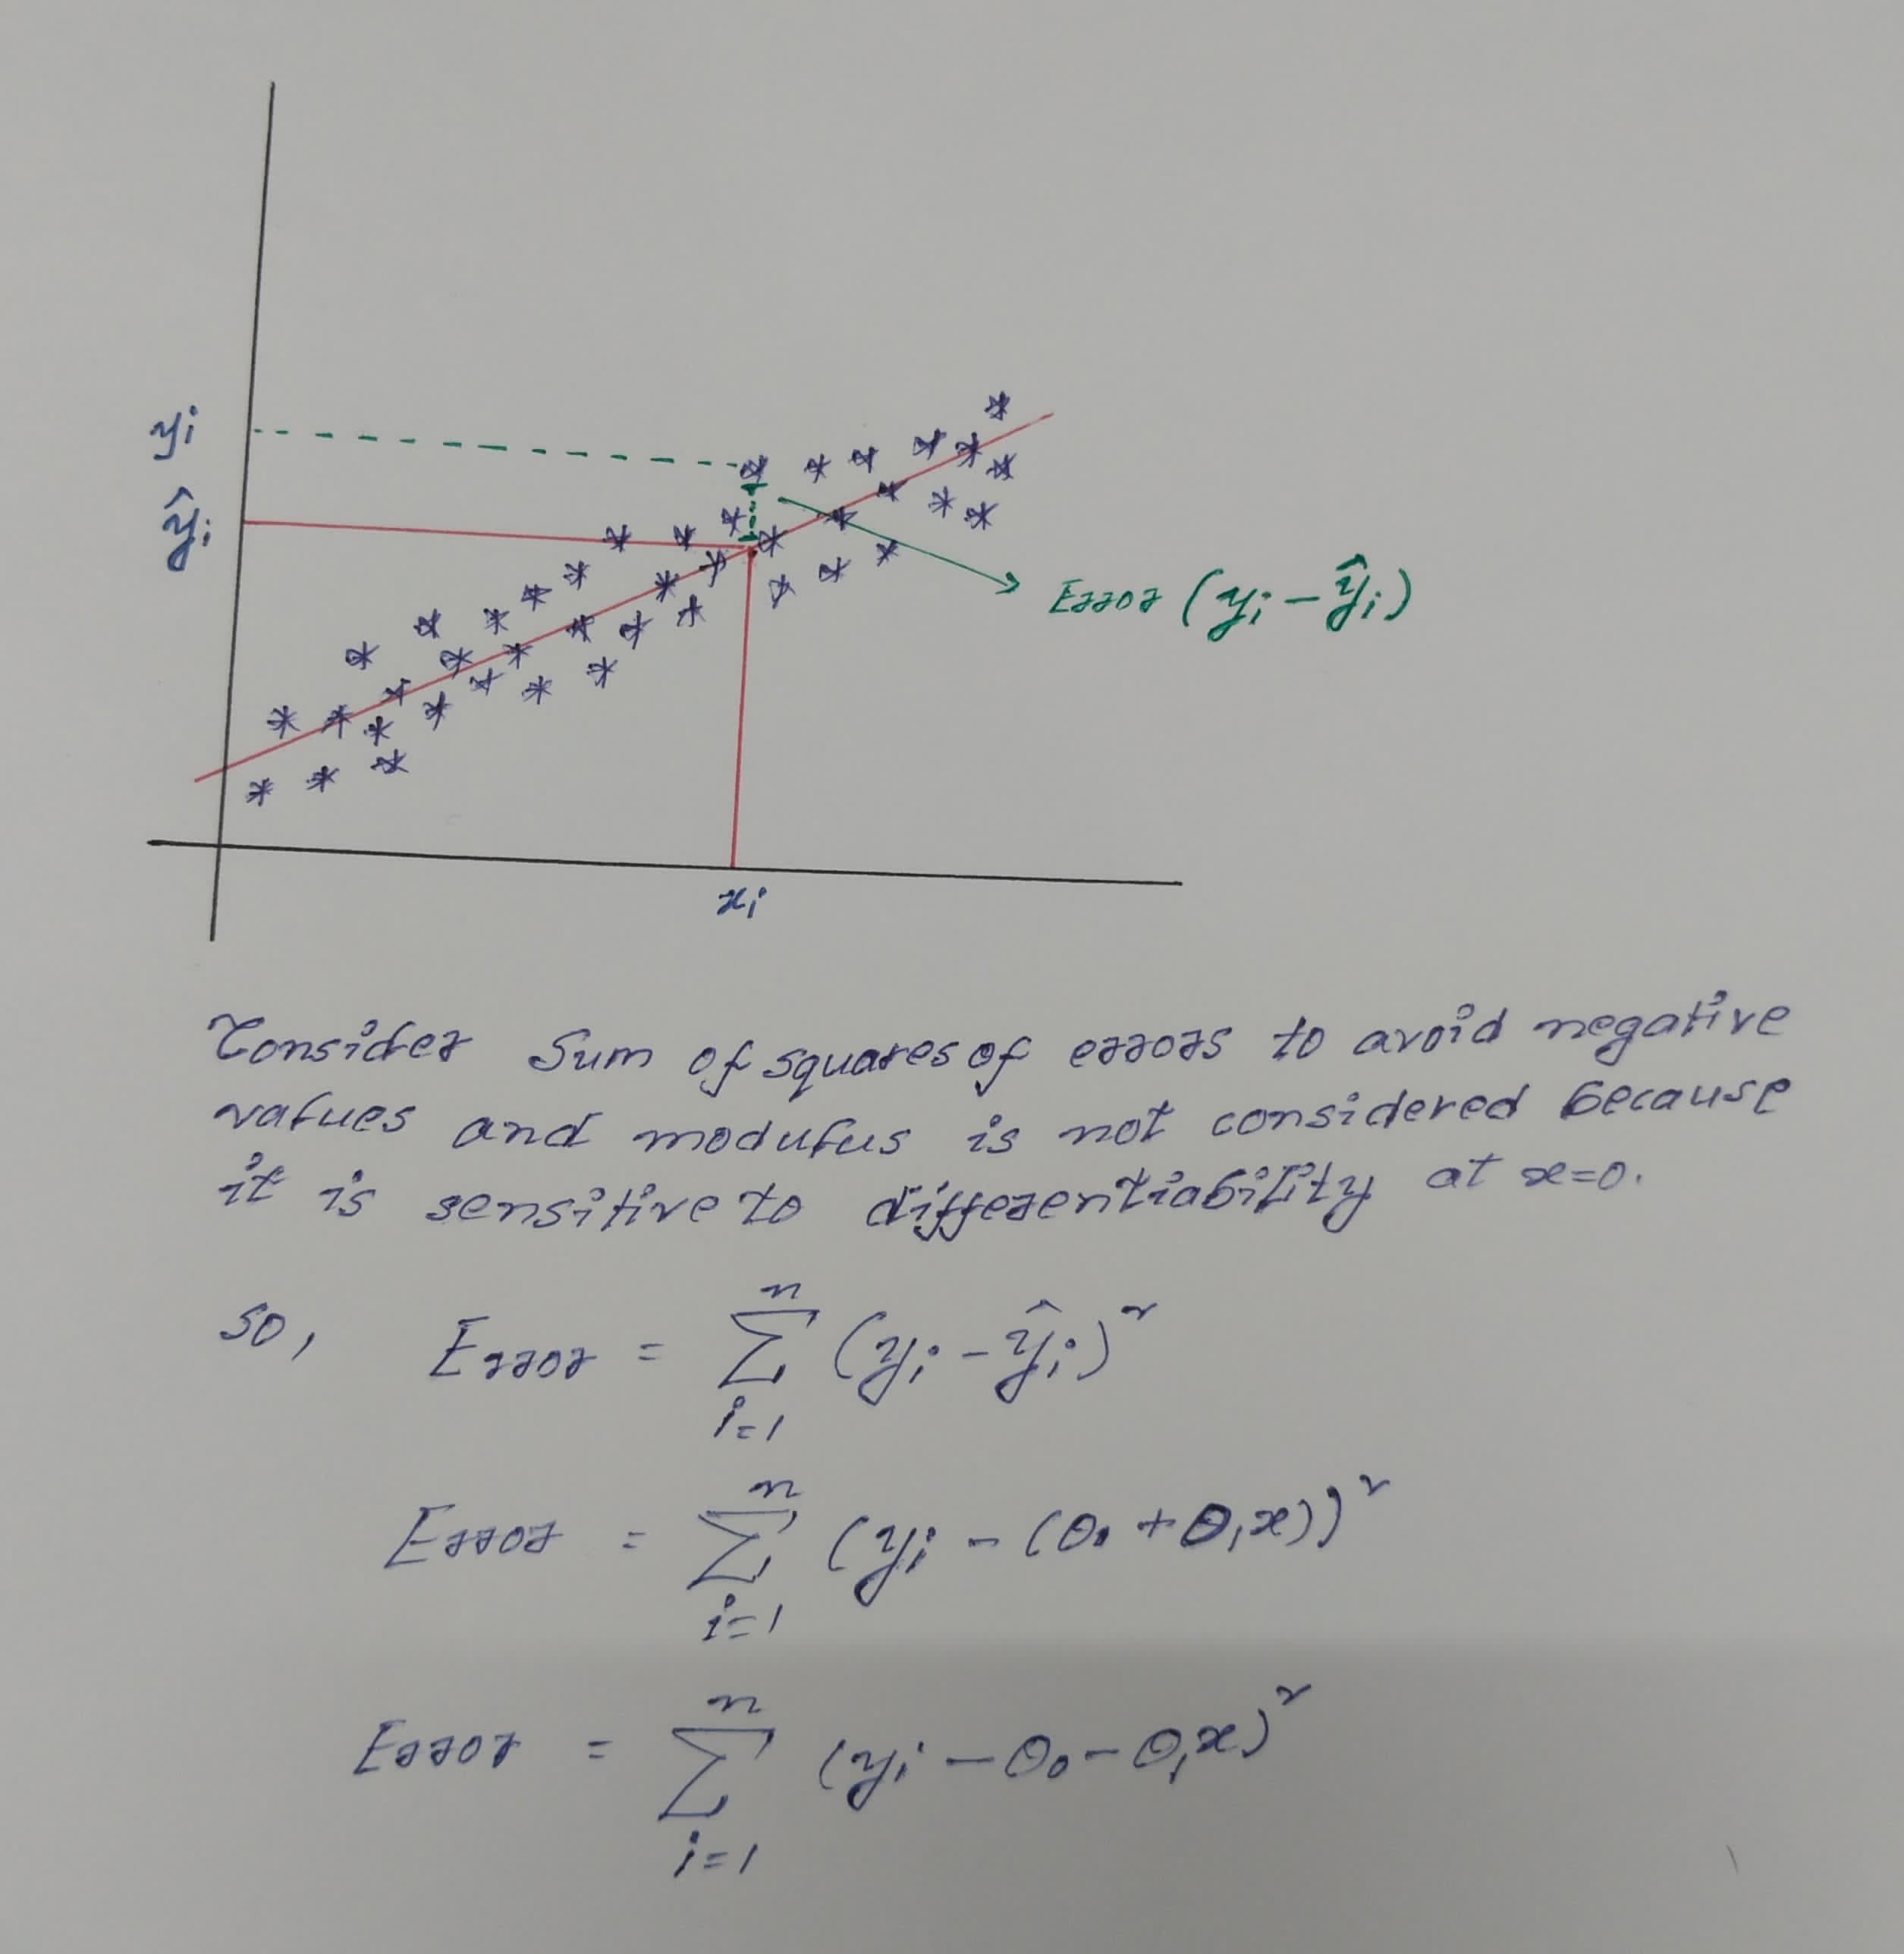 yi
ŷi
Error (yi - ŷi)
xi
Consider Sum of squares of errors to avoid negative
values and modulus is not considered because
it is sensitive to differentiability at x=0.
so, Error = n ∑ i=1 (yi - ŷi)²
Error = n ∑ i=1 (yi - (θ₀ + θ₁x))²
Error = n ∑ i=1 (yi - θ₀ - θ₁x)²